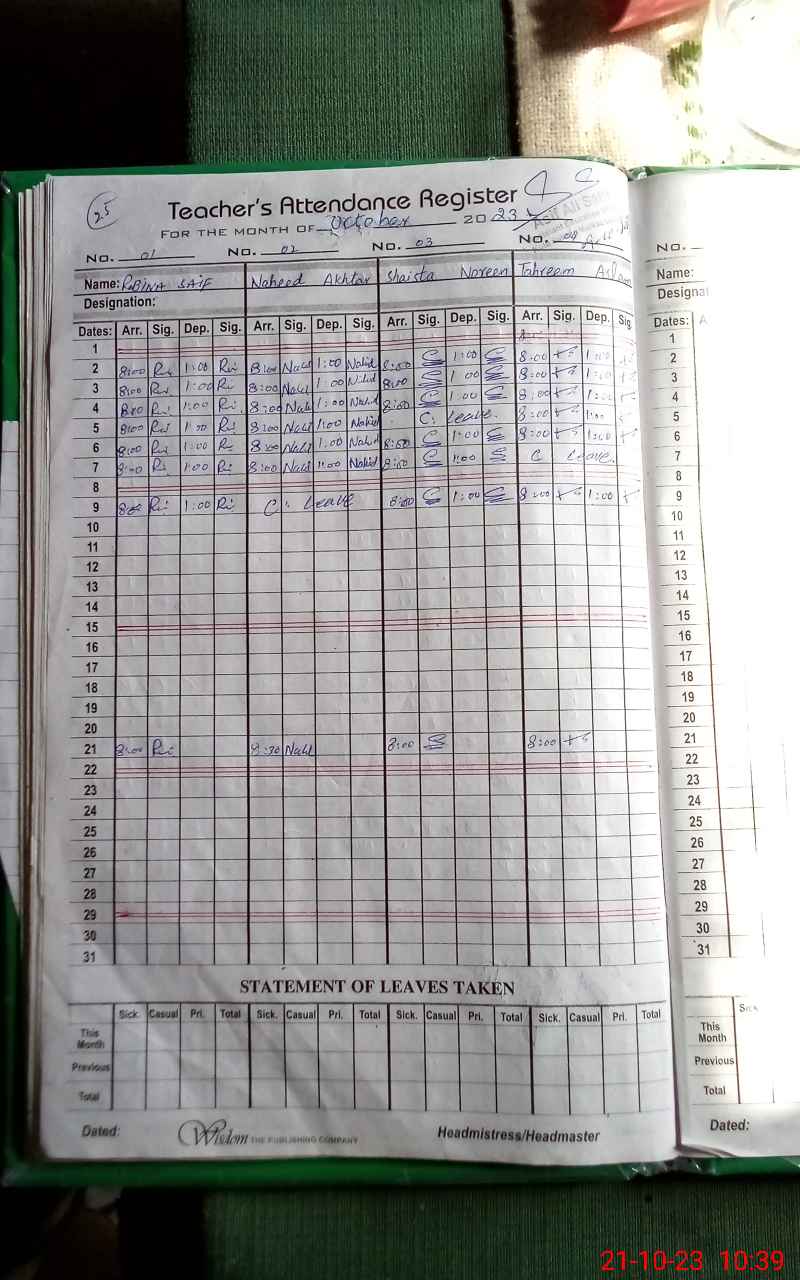 25
Teacher's Attendance Register
FOR THE MONTH OF October 2023
Asif Ali
No. 01 No. 02 No. 03 No. 04
Name: ROBINA SAIF Naheed Akhtar Shaista Noreen Tahreem
Designation:
Dates: Arr. Sig. Dep. Sig. Arr. Sig. Dep. Sig. Arr. Sig. Dep. Sig. Arr. Sig. Dep. Sig.
1
2 8:00 Ri 1:00 Ri 8:00 Nahd 1:00 Nahid 8:00 1:00 8:00 1:00
3 8:00 Ri 1:00 Ri 8:00 Nahd 1:00 Nahid 8:00 1:00 8:00 1:00
4 8:00 Ri 1:00 Ri 8:00 Nahd 1:00 Nahid 8:00 1:00 8:00 1:00
5 8:00 Ri 1:00 Ri 8:00 Nahd 1:00 Nahid C. Leave. 8:00 1:00
6 8:00 Ri 1:00 Ri 8:00 Nahd 1:00 Nahid 8:00 1:00 8:00 1:00
7 8:00 Ri 1:00 Ri 8:00 Nahd 1:00 Nahid 8:00 1:00 C Leave.
8
9 8:00 Ri 1:00 Ri C. Leave 8:00 1:00 8:00 1:00
10
11
12
13
14
15
16
17
18
19
20
21 8:00 Ri 8:30 Nahd 8:00 8:00
22
23
24
25
26
27
28
29
30
31
STATEMENT OF LEAVES TAKEN
Sick. Casual Pri. Total Sick. Casual Pri. Total Sick. Casual Pri. Total Sick. Casual Pri. Total
This Month
Previous
Total
Dated: Wisdom THE PUBLISHING COMPANY Headmistress/Headmaster
No.
Name:
Designat
Dates: A
1
2
3
4
5
6
7
8
9
10
11
12
13
14
15
16
17
18
19
20
21
22
23
24
25
26
27
28
29
30
31
Sick
This Month
Previous
Total
Dated:
21-10-23 10:39